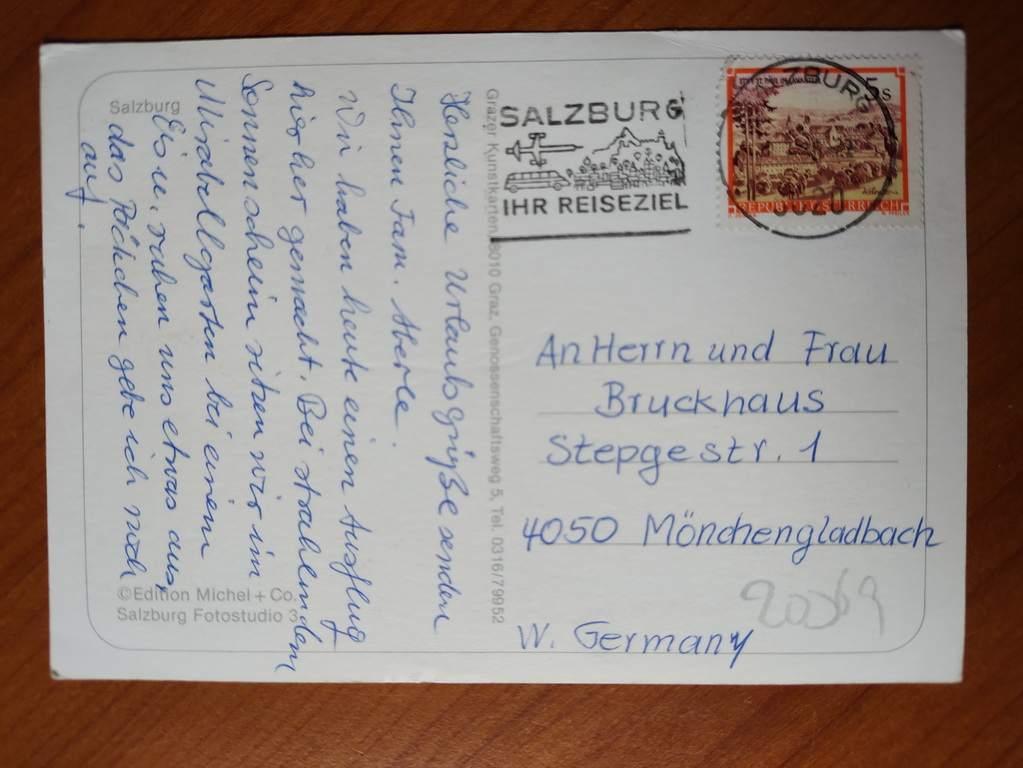 Salzburg
Herzliche Urlaubsgrüße senden
Ihnen Fam. Aberle.
Wir haben heute einen Ausflug
hierher gemacht. Bei strahlendem
Sonnenschein sitzen wir im
Mirabellgarten bei einem
Eis u. ruhen uns etwas aus,
das Päckchen gebe ich noch
auf.
©Edition Michel + Co.
Salzburg Fotostudio 3
Grazer Kunstkarten, 8010 Graz, Genossenschaftsweg 5, Tel. 0316/79952
SALZBURG
IHR REISEZIEL
SALZBURG
5020
5 S
REPUBLIK ÖSTERREICH
An Herrn und Frau
Bruckhaus
Stepgestr. 1
4050 Mönchengladbach
W. Germany